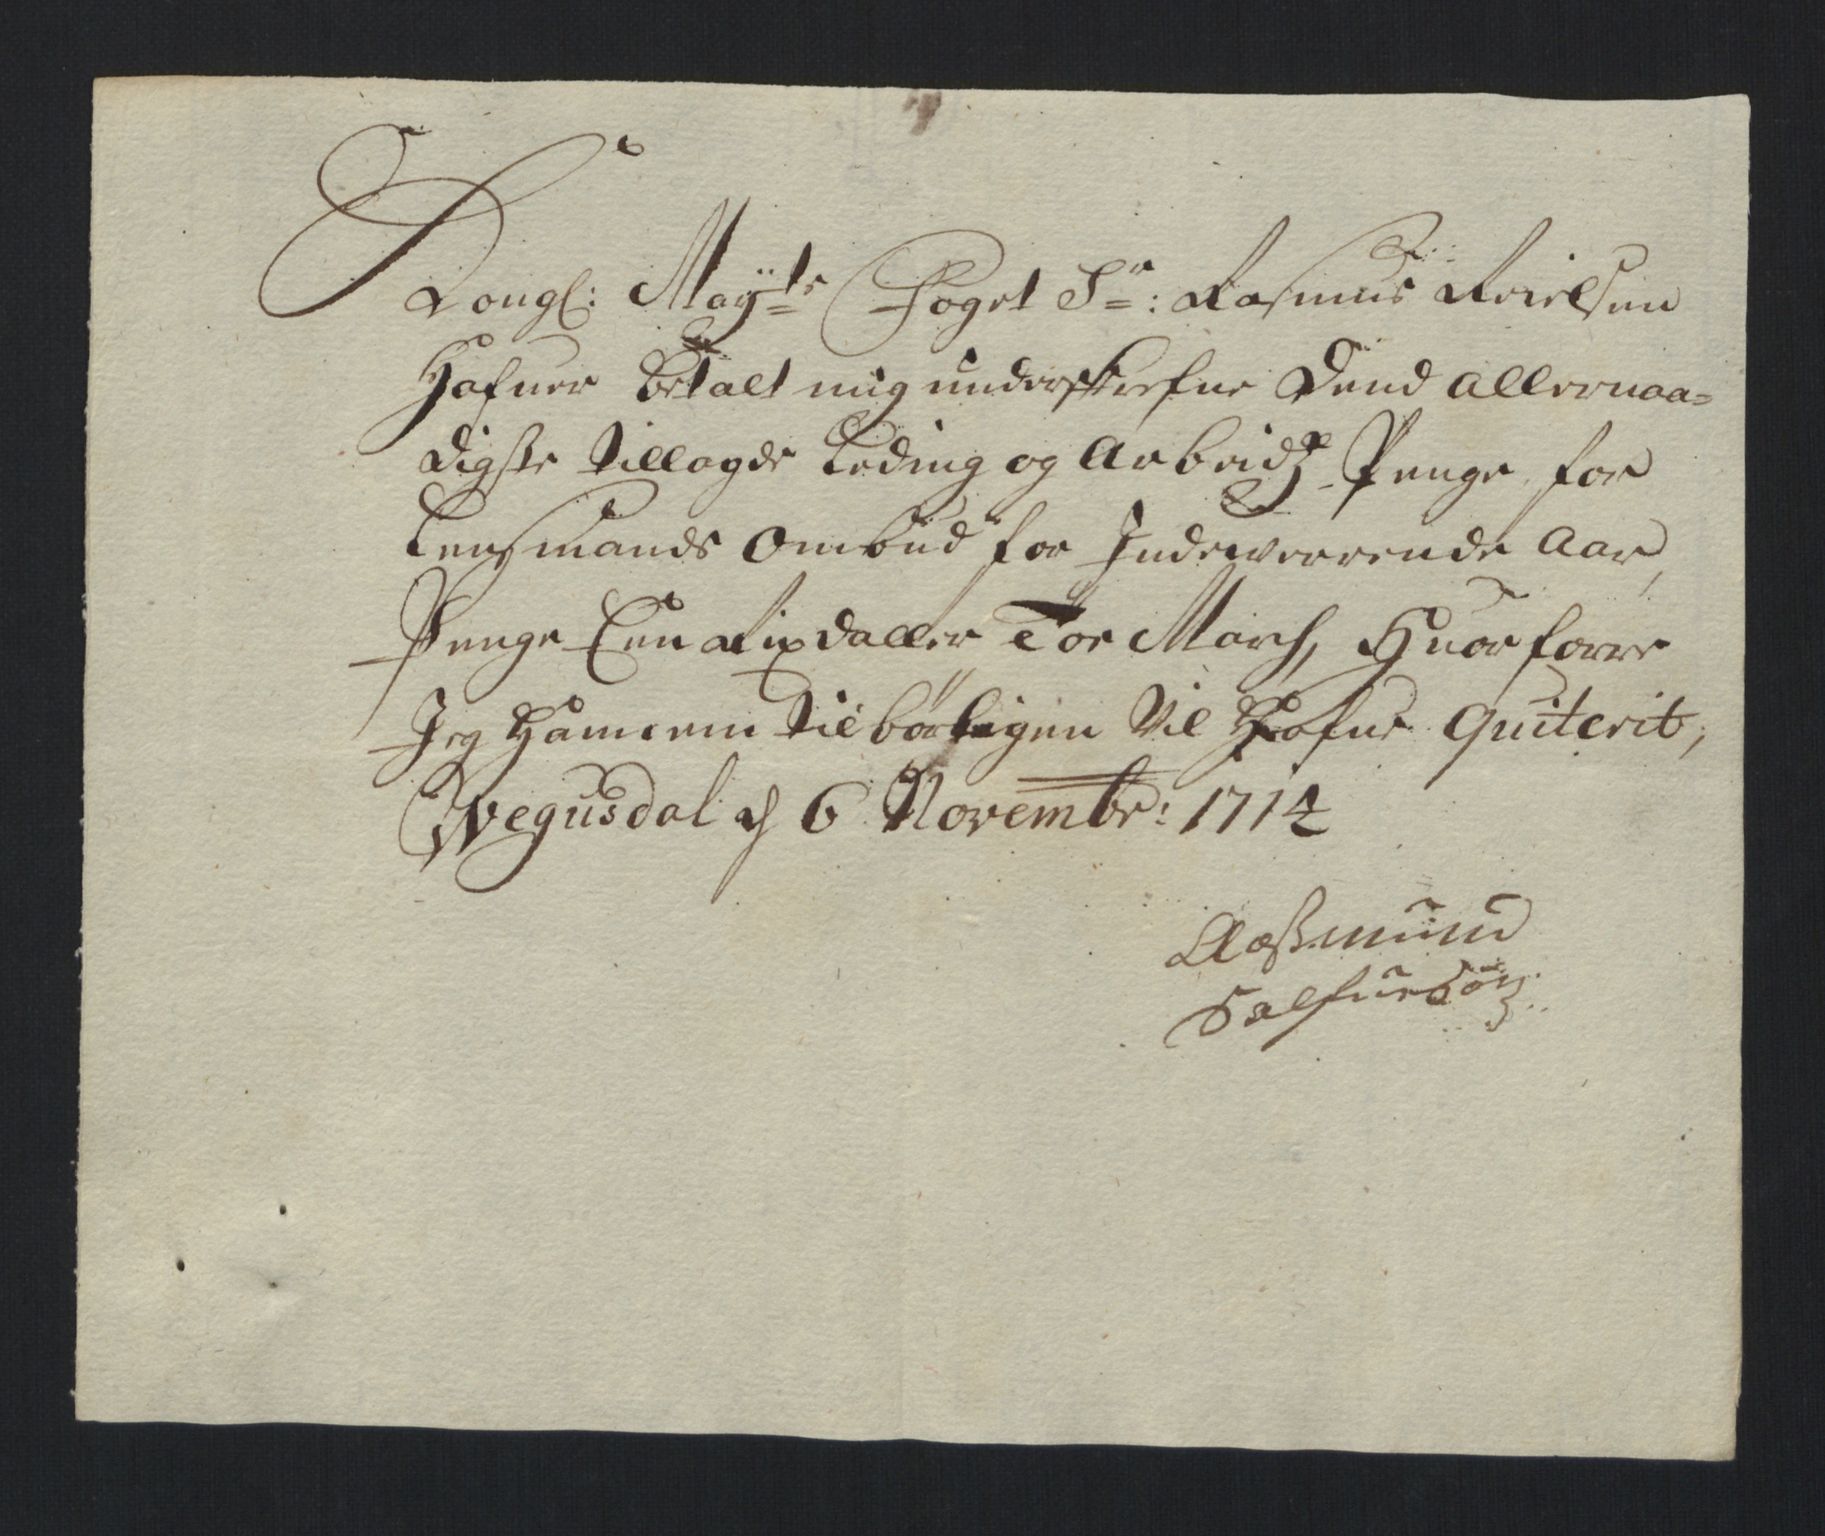 Kongl: Mayts Foget Sr: Rasmus Reielsen
Hafuer betalt mig underskrefne Dend allernaa=
digste tillagde Leding og Arbeids Penge for
Lensmands Ombud for Indewerrende Aar,
Penge Een Rixdaller Toe March, Huorforre
Jeg Ham em tilbørligen Vil Hafue quiterit,
Wegusdal d 6 Novembr: 1714
Aaßmund